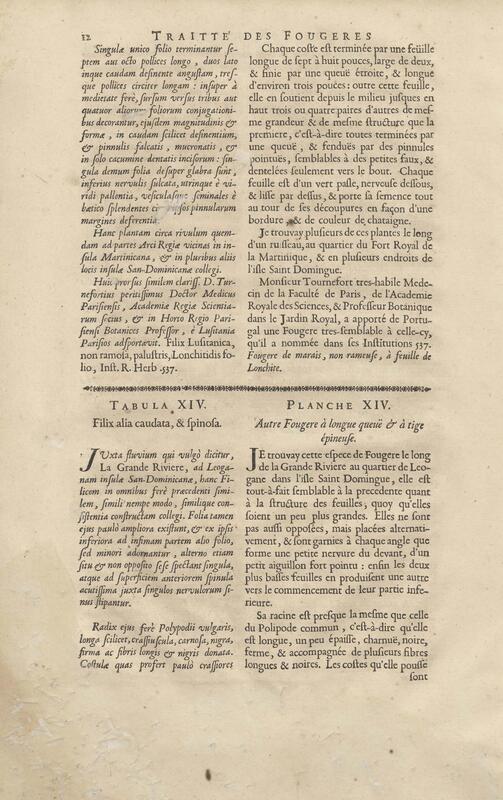 12 TRAITTÉ DES FOUGERES
Singulæ unico folio terminantur se-
ptem aut octo pollices longo, duos lato
inque caudam desinente angustam, tres-
que pollices circiter longam : insuper à
medietate ferè, sursum versus tribus aut
quatuor aliorum foliorum conjugationi-
bus decorantur, ejusdem magnitudinis &
formæ, in caudam scilicet desinentium,
& pinnulis falcatis, mucronatis, &
in solo cacumine dentatis incisorum : sin-
gula demum folia desuper glabra sunt,
inferius nervulis sulcata, utrinque è vi-
ridi pallentia, vesiculasque seminales è
bætico splendentes circa ipsos pinnularum
margines deferentia.
Hanc plantam circa rivulum quem-
dam ad partes Arci Regiæ vicinas in in-
sula Martinicana, & in pluribus aliis
locis insulæ San-Dominicanæ collegi.
Huic prorsus similem clariss. D. Tur-
nefortius peritissimus Doctor Medicus
Parisiensis, Academiæ Regiæ Scientia-
rum socius, & in Horto Regio Pari-
siensi Botanices Professor, è Lusitania
Parisios adsportavit. Filix Lusitanica,
non ramosa, palustris, Lonchitidis fo-
lio, Inst. R. Herb. 537.
Chaque coste est terminée par une feüille
longue de sept à huit pouces, large de deux,
& finie par une queuë étroite, & longue
d'environ trois pouces : outre cette feuille,
elle en soutient depuis le milieu jusques en
haut trois ou quatre paires d'autres de mes-
me grandeur & de mesme structure que la
premiere, c'est-à-dire toutes terminées par
une queuë, & fenduës par des pinnules
pointuës, semblables à des petites faux, &
dentelées seulement vers le bout. Chaque
feuille est d'un vert pasle, nerveuse dessous,
& lisse par dessus, & porte sa semence tout
au tour de ses découpures en façon d'une
bordure & de couleur de chataigne.
Je trouvay plusieurs de ces plantes le long
d'un ruisseau, au quartier du Fort Royal de
la Martinique, & en plusieurs endroits de
l'isle Saint Domingue.
Monsieur Tournefort tres-habile Mede-
cin de la Faculté de Paris, de l'Academie
Royale des Sciences, & Professeur Botanique
dans le Jardin Royal, a apporté de Portu-
gal une Fougere tres-semblable à celle-cy,
qu'il a nommée dans ses Institutions 537.
Fougere de marais, non rameuse, à feuille de
Lonchite.
TABULA XIV.
Filix alia caudata, & spinosa.
JUxta fluvium qui vulgò dicitur,
La Grande Riviere, ad Leoga-
nam insulæ San-Dominicanæ, hanc Fi-
licem in omnibus ferè præcedenti simi-
lem, simili nempe modo, similique con-
sistentia constructam collegi. Folia tamen
ejus paulò ampliora existunt, & ex ipsis
inferiora ad infimam partem alio folio,
sed minori adornantur, alterno etiam
situ & non opposito sese spectant singula,
atque ad superficiem anteriorem spinula
acutissima juxta singulos nervulorum si-
nus stipantur.
Radix ejus ferè Polypodii vulgaris,
longa scilicet, crassiuscula, carnosa, nigra,
firma ac fibris longis & nigris donata.
Costulæ quas profert paulò crassiores
PLANCHE XIV.
Autre Fougere à longue queuë & à tige
épineuse.
JE trouvay cette espece de Fougere le long
de la Grande Riviere au quartier de Leo-
gane dans l'isle Saint Domingue, elle est
tout-à-fait semblable à la precedente quant
à la structure des feuilles, quoy qu'elles
soient un peu plus grandes. Elles ne sont
pas aussi opposées, mais placées alternati-
vement, & sont garnies à chaque angle que
forme une petite nervure du devant, d'un
petit aiguillon fort pointu : enfin les deux
plus basses feuilles en produisent une autre
vers le commencement de leur partie infe-
rieure.
Sa racine est presque la mesme que celle
du Polipode commun, c'est-à-dire qu'elle
est longue, un peu épaisse, charnuë, noire,
ferme, & accompagnée de plusieurs fibres
longues & noires. Les costes qu'elle pousse
sont